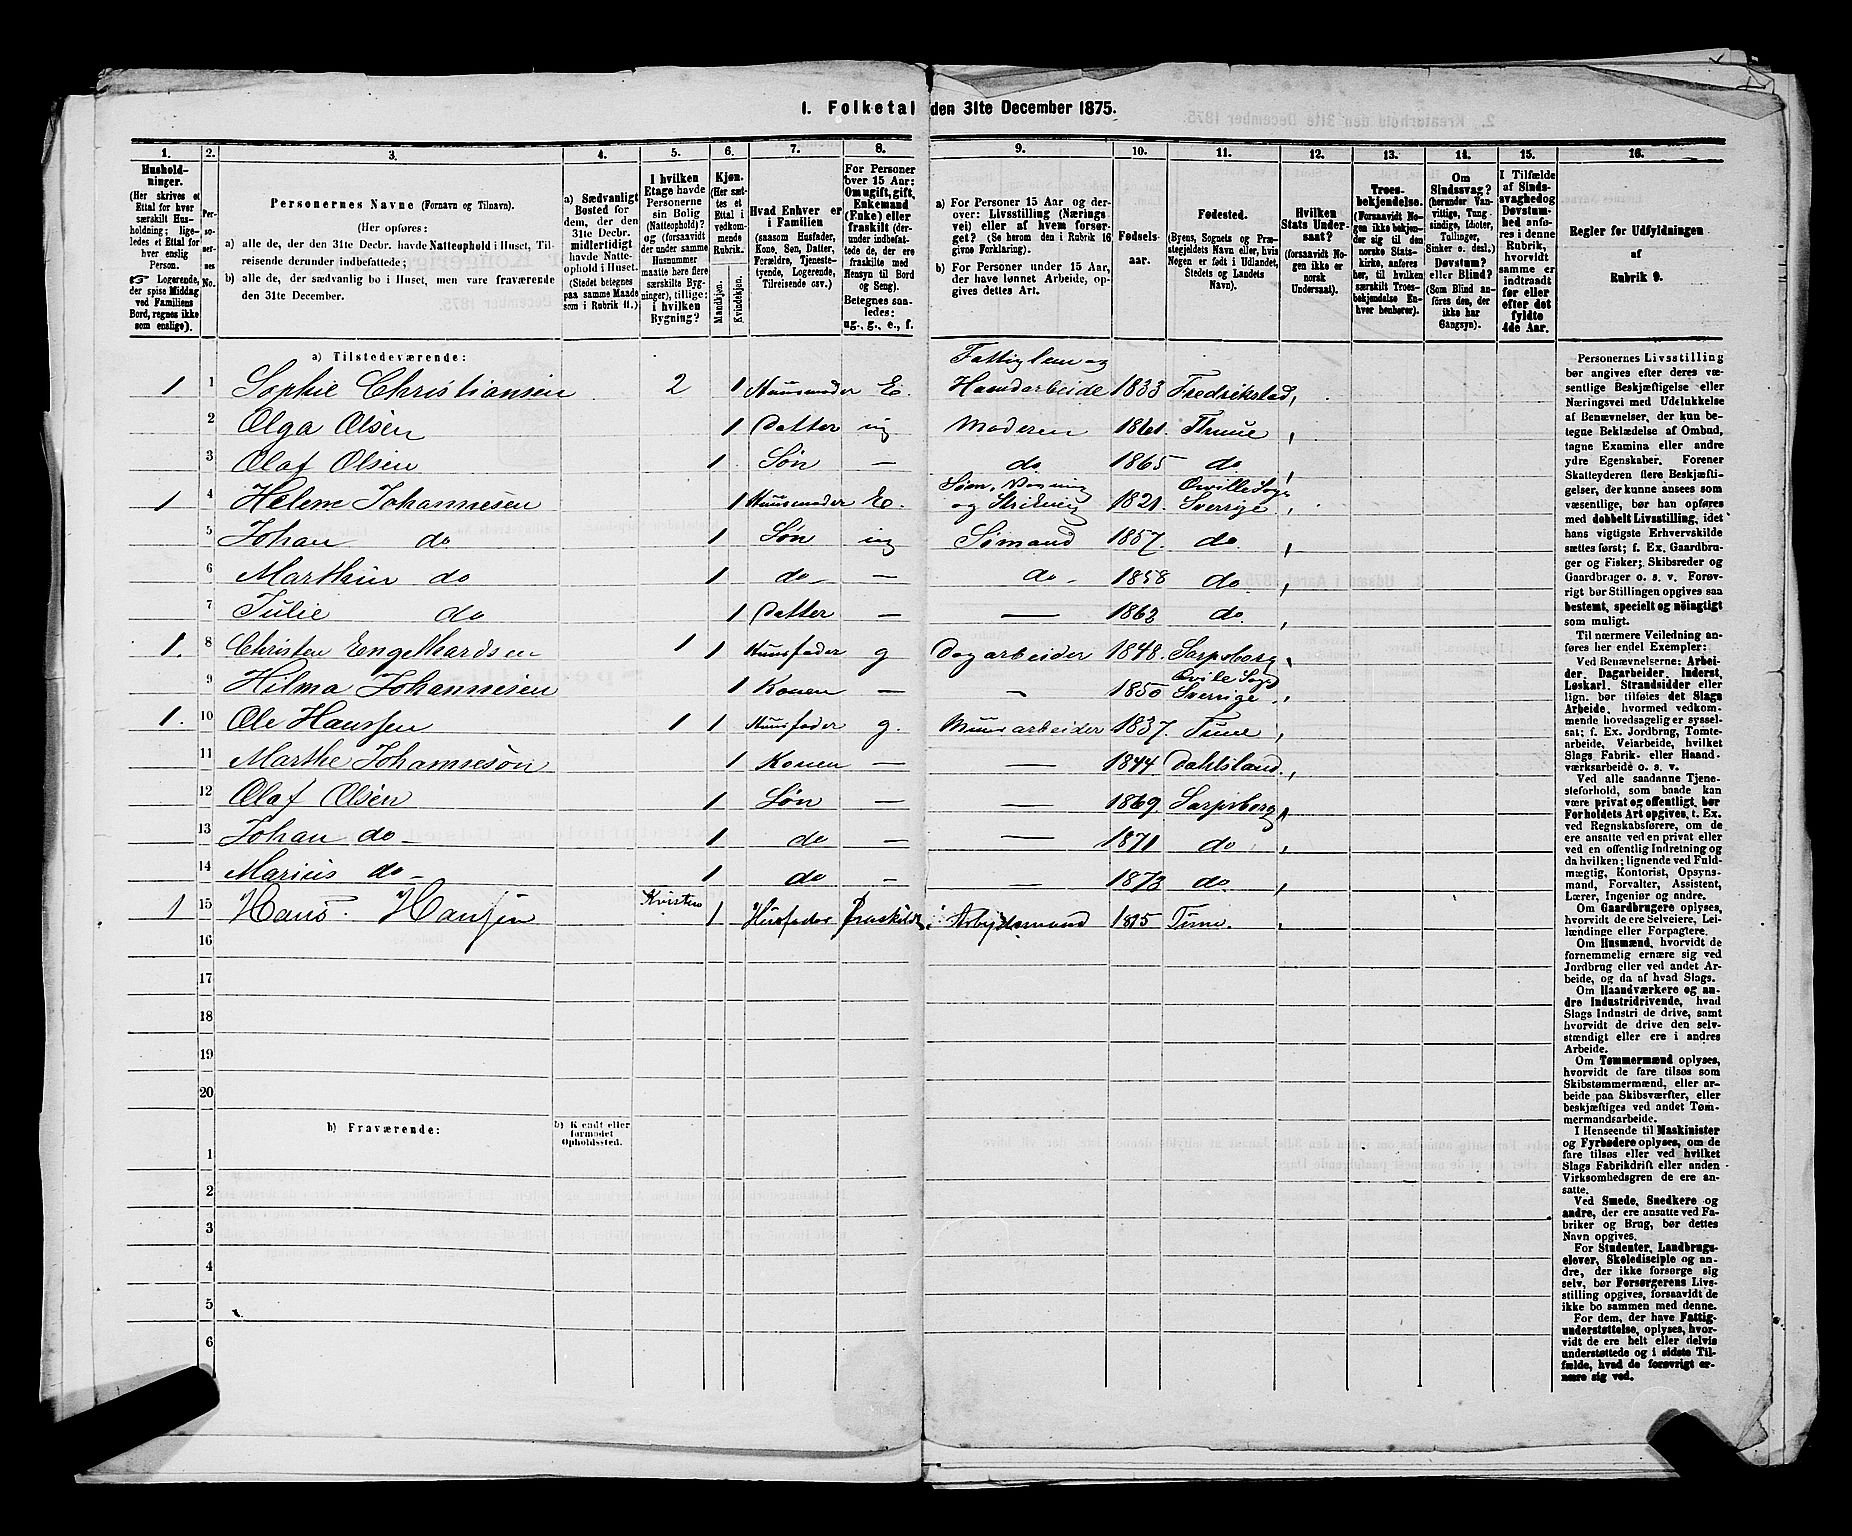 1. Folketal den 31te December 1875.
1. 2. 3. 4. 5. 6. 7. 8. 9. 10. 11. 12. 13. 14. 15. 16.
Hushold-
ninger.
(Her skrives et
Ettal for hver
særskilt Hus-
holdning; lige-
ledes et Ettal for
hver enslig
Person.
Logerende,
der spise Middag
ved Familiens
Bord, regnes ikke
som enslige).
Per-
so-
ner-
nes
No.
Personernes Navne (Fornavn og Tilnavn).
(Her opføres:
a) alle de, der den 31te Decbr. havde Natteophold i Huset, Til-
reisende derunder indbefattede;
b) alle de, der sædvanlig bo i Huset, men vare fraværende
den 31te December.
a) Sædvanligt
Bosted for
dem, der den
31te Decbr.
midlertidigt
havde Natte-
ophold i Huset.
(Stedet betegnes
paa samme Maade
som i Rubrik 11.)
I hvilken
Etage havde
Personerne
sin Bolig
(Natteophold)?
og (forsaavidt
der under samme
Husnummer
maatte høre flere
særskilte Byg-
ninger), tillige:
i hvilken
Bygning?
Kjøn.
(Her sæt-
tes et
Ettal i
vedkom-
mende
Rubrik.
Mandkjøn.
Kvindekjøn.
Hvad Enhver er
i Familien
(saasom Husfader,
Kone, Søn, Datter,
Forældre, Tjeneste-
tyende, Logerende,
Tilreisende osv.)
For Personer
over 15 Aar:
Om ugift, gift,
Enkemand
(Enke) eller
fraskilt (der-
under indbefat-
tede de, der ere
fraskilte med
Hensyn til Bord
og Seng).
Betegnes saa-
ledes:
ug., g., e., f.
a) For Personer 15 Aar og der-
over: Livsstilling (Nærings-
vei) eller af hvem forsør-
get? (Se herom den i Rubrik 16
givne Forklaring).
b) For Personer under 15 Aar,
der have lønnet Arbeide, op-
gives dettes Art.
Fødsels-
aar.
Fødested.
(Byens, Sognets og Præ-
stegjeldets Navn eller, hvis
Nogen er født i Udlandet,
Stedets og Landets
Navn).
Hvilken
Stats Under-
saat?
(forsaavidt No-
gen ikke er
norsk
Undersaat).
Troes-
bekjendelse.
(Forsaavidt No-
gen ikke bekjen-
der sig til den
norske Stats-
kirke, anføres
her, til hvilken
særskilt Troes-
bekjendelse En-
hver henhører).
Om
Sindssvag?
(herunder Van-
vittige, Tung-
sindige, Idioter,
Tullinger,
Sinker o. desl.)
Døvstum?
eller Blind?
(Som Blind an-
føres den, der
ikke har
Gangsyn).
I Tilfælde
af Sinds-
svaghed og
Døvstum-
hed anfø-
res i denne
Rubrik,
hvorvidt
samme er
indtraadt
før eller
efter det
fyldte
4de Aar.
Regler for Udfyldningen
af
Rubrik 9.
a) Tilstedeværende:
Fattiglem og
1 1 Sophie Christiansen 2 1 Huusmoder E. Haandarbeide 1833 Fredrikstad
2 Olga Olsen 1 Datter ug Moderen 1861 Thune
3 Olaf Olsen 1 Søn — do 1865 do
1 4 Helene Johannesen 1 Huusmoder E. og Strikning 1821 Sverrige
5 Johan do 1 Søn ug Sømand 1857 do
6 Marthin do 1 do — do 1858 do
7 Julie do 1 Datter — — 1863 do
1. 8 Christen Engelhardsen 1 1 Huusfader g Dagarbeider 1848 Sarpsborg
9 Hilma Johannesen 1 Konen — — 1850 Sverrige
1. 10 Ole Hanssen 1 1 Huusfader g. Muurarbeider 1837 Tune
11 Marthe Johannesøn 1 Konen — — 1844 Dahlsland
12 Olaf Olsen 1 Søn — — 1869 Sarpsborg
13 Johan do 1 do — — 1871 do
14 Marius do 1 do — — 1873 do
1 15 Hans Hansen Kvisten 1 Husfader fraskildt Arbeidsmand 1815 Tune.
16
17
18
19
20
b) Fraværende:
b) Kjendt eller
formodet
Opholdssted.
1
2
3
4
5
6
Personernes Livsstilling
bør angives efter deres væ-
sentlige Beskjæftigelse eller
Næringsvei med Udelukkelse
af Benævnelser, der kun be-
tegne Beklædelse af Ombud,
tagne Examina eller andre
ydre Egenskaber. Forener
Skatteyderen flere Beskjæfti-
gelser, der kunne ansees som
væsentlige, bør han opføres
med dobbelt Livsstilling, idet
hans vigtigste Erhvervskilde
sættes først; f. Ex. Gaardbru-
ger og Fisker; Skibsreder og
Gaardbruger o. s. v. Forøv-
rigt bør Stillingen opgives saa
bestemt, specielt og nöiagtigt
som muligt.
Til nærmere Veiledning an-
føres her endel Exempler:
Ved Benævnelserne: Arbei-
der, Dagarbeider, Inderst,
Løskarl, Strandsidder eller
lign. bør tilføies det Slags
Arbeide, hvormed vedkom-
mende hovedsagelig er syssel-
sat; f. Ex. Jordbrug, Tomte-
arbeide, Veiarbeide, hvilket
Slags Fabrik- eller Haand-
værksarbeide o. s. v.
Ved alle saadanne Tjene-
steforhold, som baade kan
være privat og offentligt, bør
Forholdets Art opgives, t. Ex.
ved Regnskabsførere, om de
ere ansatte ved en privat eller
ved en offentlig Indretning og
da hvilken; lignende ved Fuld-
mægtig, Kontorist, Opsyns-
mand, Forvalter, Assistent,
Lærer, Ingeniør og andre.
Om Gaardbrugere oplyses,
hvorvidt de ere Selveiere, Lei-
lændinge eller Forpagtere.
Om Husmænd, hvorvidt de
fornemmelig ernære sig ved
Jordbrug eller ved andet Ar-
beide, og da af hvad Slags.
Om Haandværkere og an-
dre Industridrivende, hvad
Slags Industri de drive, samt
hvorvidt de drive den selv-
stændigt eller ere i andres
Arbeide.
Om Tømmermænd oplyses,
hvorvidt de fare tilsøs som
Skibstømmermænd, eller ar-
beide paa Skibsværfter, eller
beskjæftiges ved andet Tøm-
mermandsarbeide.
I Henseende til Maskinister
og Fyrbødere oplyses, om de
fare tilsøs eller ved hvilket
Slags Fabrikdrift eller anden
Virksomhedsgren de ere an-
satte.
Ved Smede, Snedkere og
andre, der ere ansatte ved Fa-
briker og Brug, bør dettes
Navn opgives.
For Studenter, Landbrugs-
elever, Skoledisciple og an-
dre, der ikke forsørge sig
selv, bør Forsørgerens Livs-
stilling opgives, forsaavidt de
ikke bo sammen med denne.
For dem, der have Fattig-
understøttelse, oplyses, hvor-
vidt de ere helt eller delvis
understøttede og i sidste Til-
fælde, hvad de forøvrigt er-
nære sig ved.